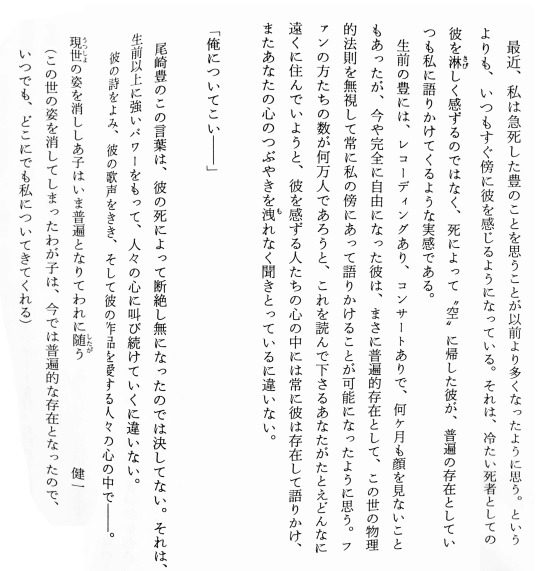 最近、私は急死した豊のことを思うことが以前より多くなったように思う。という
よりも、いつもすぐ傍に彼を感じるようになっている。それは、冷たい死者としての
彼を淋しく感ずるのではなく、死によって〝空〟に帰した彼が、普遍の存在としてい
つも私に語りかけてくるような実感である。
生前の豊には、レコーディングあり、コンサートありで、何ケ月も顔を見ないこと
もあったが、今や完全に自由になった彼は、まさに普遍的存在として、この世の物理
的法則を無視して常に私の傍にあって語りかけることが可能になったように思う。フ
ァンの方たちの数が何万人であろうと、これを読んで下さるあなたがたとえどんなに
遠くに住んでいようと、彼を感ずる人たちの心の中には常に彼は存在して語りかけ、
またあなたの心のつぶやきを洩れなく聞きとっているに違いない。
「俺についてこい――」
尾崎豊のこの言葉は、彼の死によって断絶し無になったのでは決してない。それは、
生前以上に強いパワーをもって、人々の心に叫び続けていくに違いない。
彼の詩をよみ、彼の歌声をきき、そして彼の作品を愛する人々の心の中で――。
現世の姿を消ししあ子はいま普遍となりてわれに随う
健一
(この世の姿を消してしまったわが子は、今では普遍的な存在となったので、
いつでも、どこにでも私についてきてくれる)